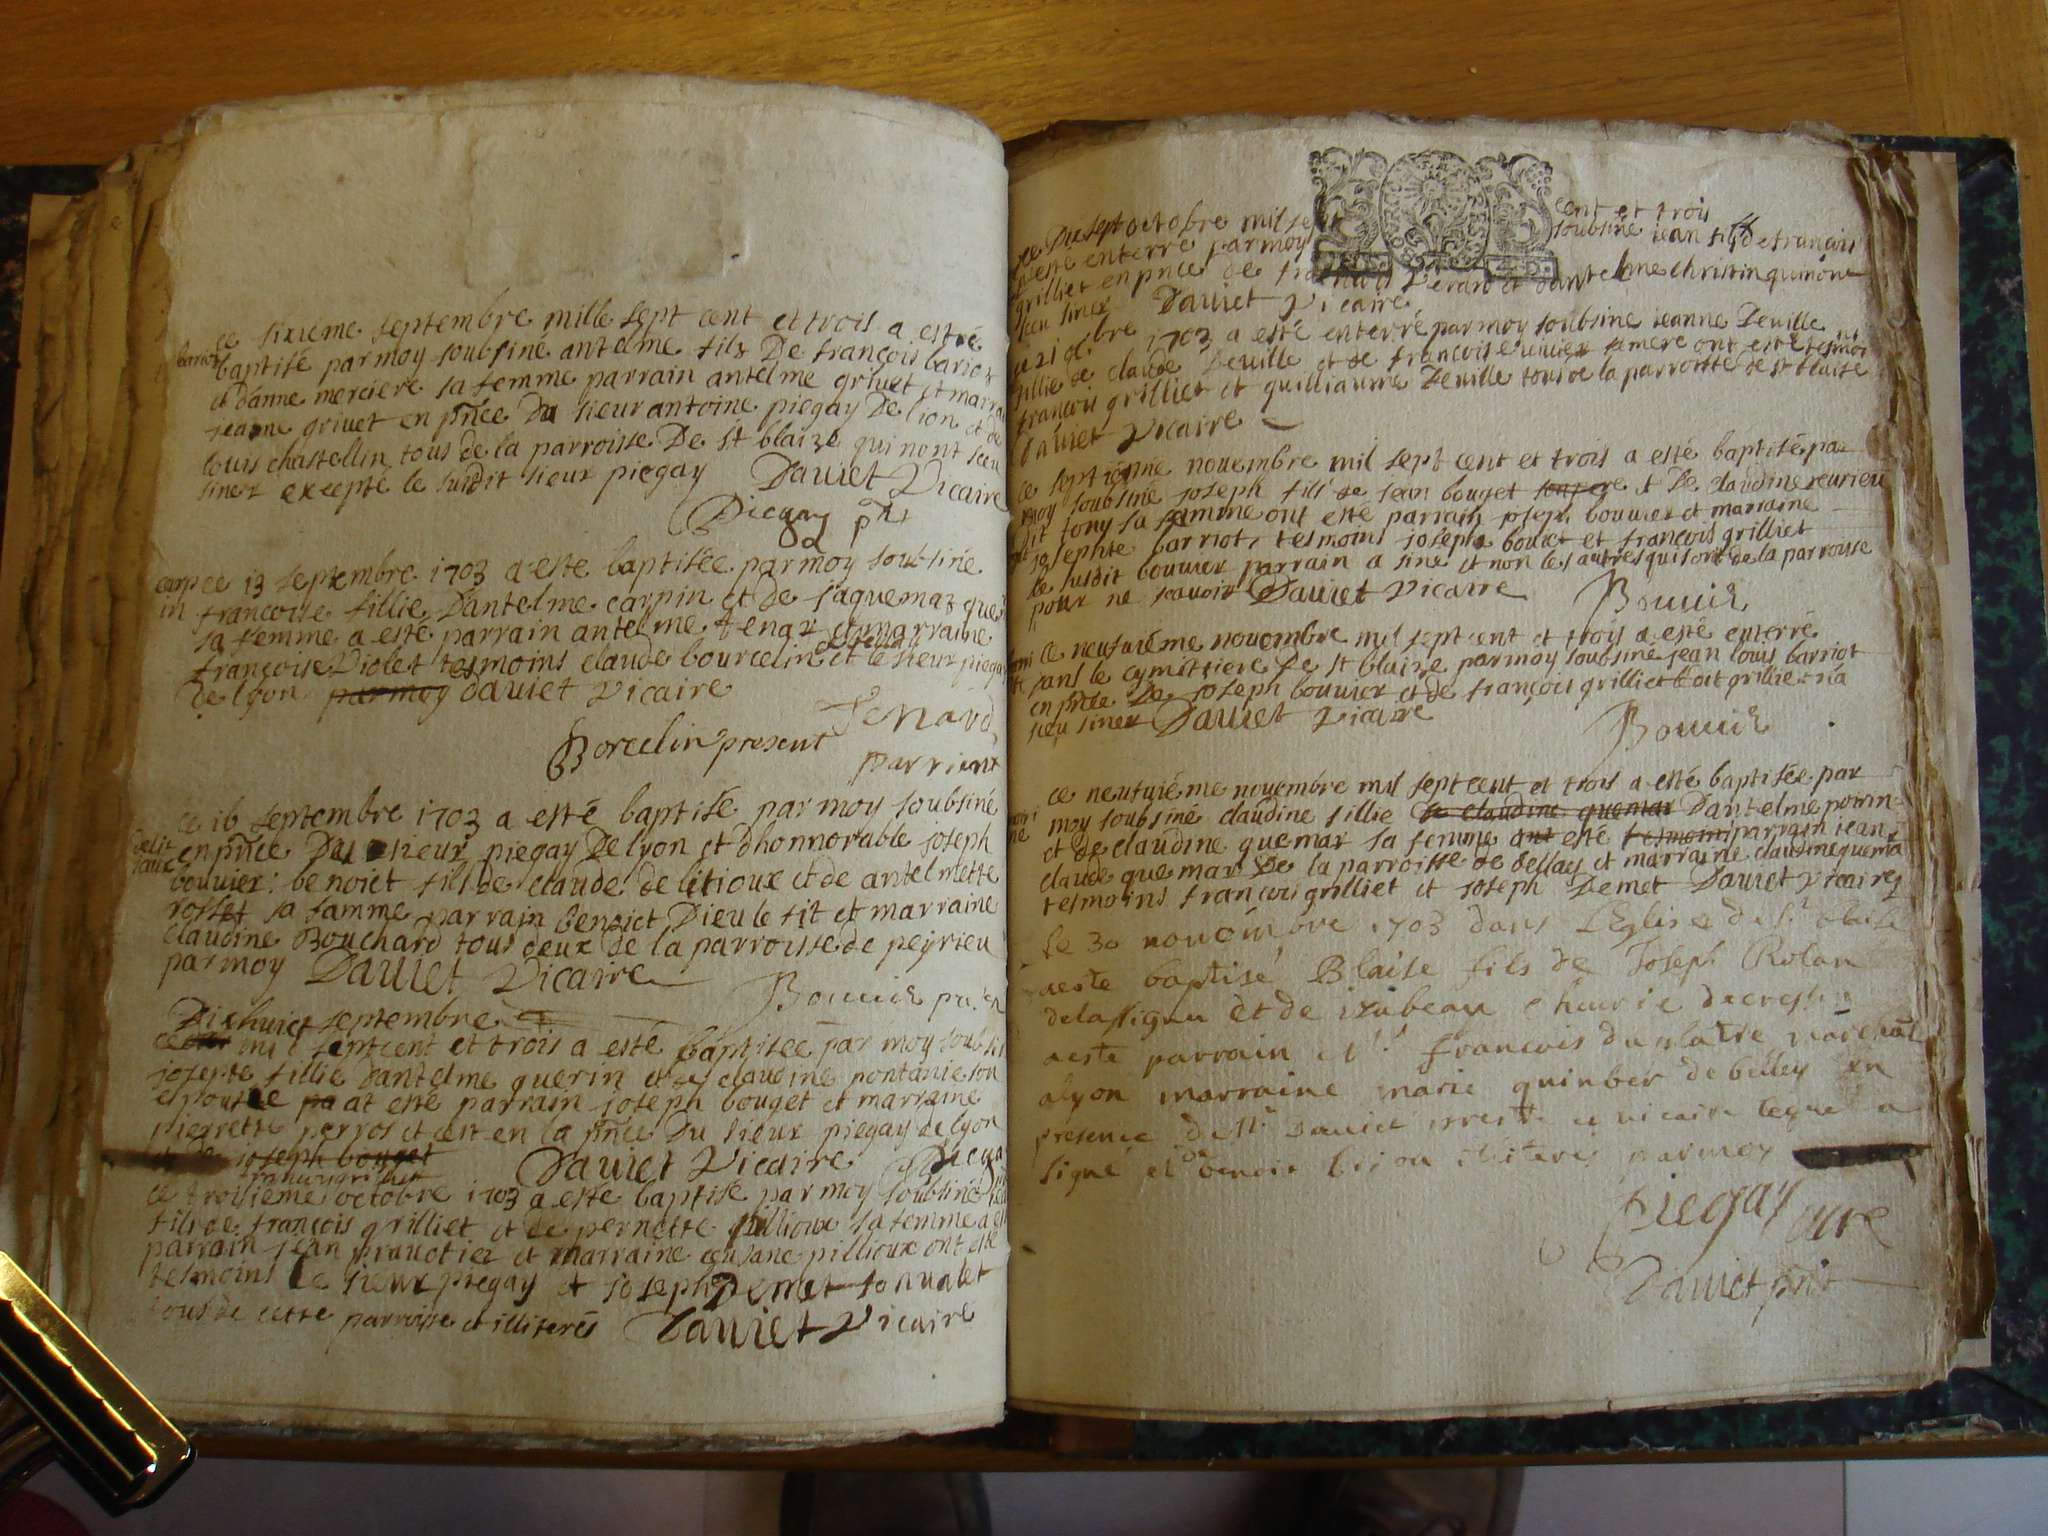 ce sixieme septembre mille sept cent et trois a esté
bariot
baptisé par moy soubsiné antelme fils De françois bariot
et danne merciere sa femme parrain antelme grivet et marra
jeanne grivet en pnce Du sieur antoine piegay De lion et de
louis chastellin tous de la parroisse De st blaize qui nont sceu
siner excepté le susdit sieur piegay Daviet Vicaire
Piegay pnt
carp ce 13 septembre 1703 a esté baptisée par moy soubsiné
in francoise fillie Dantelme carpin et de jaquemaz que
sa femme a esté parrain antelme tenar et marraine
françoise Violet tesmoins claude bourcelin et le sieur piegay
de lyon par moy daviet vicaire
Tenard
Borcelin present parrient
ce 16 septembre 1703 a esté baptisé par moy soubsiné
delit
ioux
en pnce Du sieur piegay De lyon et dhonnorable joseph
bouvier: benoict fils de claude delitioux et de antelmette
rosset sa famme parrain benoict Dieu le fit et marraine
claudine Bouchard tous deux de la parroisse de peyrieu
par moy Daviet Vicaire
Bouvier
Dixhuict septembre
mil septcent et trois a esté baptisée par moy soubsi
josepte fillie Dantelme guerin et de claudine pontanie son
epouse at esté parrain joseph bouget et marraine
pierrette perros et cet en la pnce Du sieur piegay de lyon
et de joseph bouget Daviet Vicaire Piega
francois grilliet
ce troisieme octobre 1703 a esté baptisé par moy soubsiné
fils de françois grilliet et de pernette pillioux sa femme a
parrain jean et marraine pillioux ont esté
tesmoins Le sieur piegay et joseph Demet
tous de cette parroisse et illiterés Daviet Vicaire
ce Dixsept octobre mil se cent et trois
a esté enterré par moy soubsiné jean fils de francois
grilliet en pnce de et dantelme christin qui nont
sceu siner Daviet Vicaire
ce 21 obre 1703 a esté enterré par moy soubsiné jeanne Deville
fillie de claude Deville et de francoise vivier sa mere ont esté tesmoi
françois grilliet et guilliaume Deville tous de la parroisse de st blaise
Daviet Vicaire
ce septieme novembre mil sept cent et trois a esté baptisé pa
moy soubsiné joseph fils de jean bouget et De claudine reurieu
dit tony sa femme ont esté parrain joseph bouvier et marraine
josephte barriot, tesmoins joseph bouet et françois grilliet
le susdit bouvier parrain a siné et non les autres qui sont de la parroisse
pour ne scavoir Daviet Vicaire Bouvier
ce neufvieme novembre mil sept cent et trois a esté enterré
dans le cymettiere De st blaise par moy soubsiné jean louis barriot
en pnce De joseph bouvier et de françois grilliet grilliet na
sceu siner Daviet Vicaire
Bouvier
ce neufvieme novembre mil sept cent et trois a esté baptisée par
moy soubsiné claudine fillie de claudine quemar Dantelme
et de claudine quemar sa femme ont esté tesmoins parrain jean
claude quemar De la parroisse de bellay et marraine claudine quema
tesmoins françois grilliet et joseph Demet Daviet vicaire
Le 30 novembre 1703 dans L'Eglise de St blaise
a esté baptisé Blaise fils de Joseph Rolan
et de
a esté parrain Mr francois
a lyon marraine marie quinber de belley En
presence de Mr Daviet et vicaire lequel a
signé et benoit illiteré par moy
Piegay curé
Daviet pnt